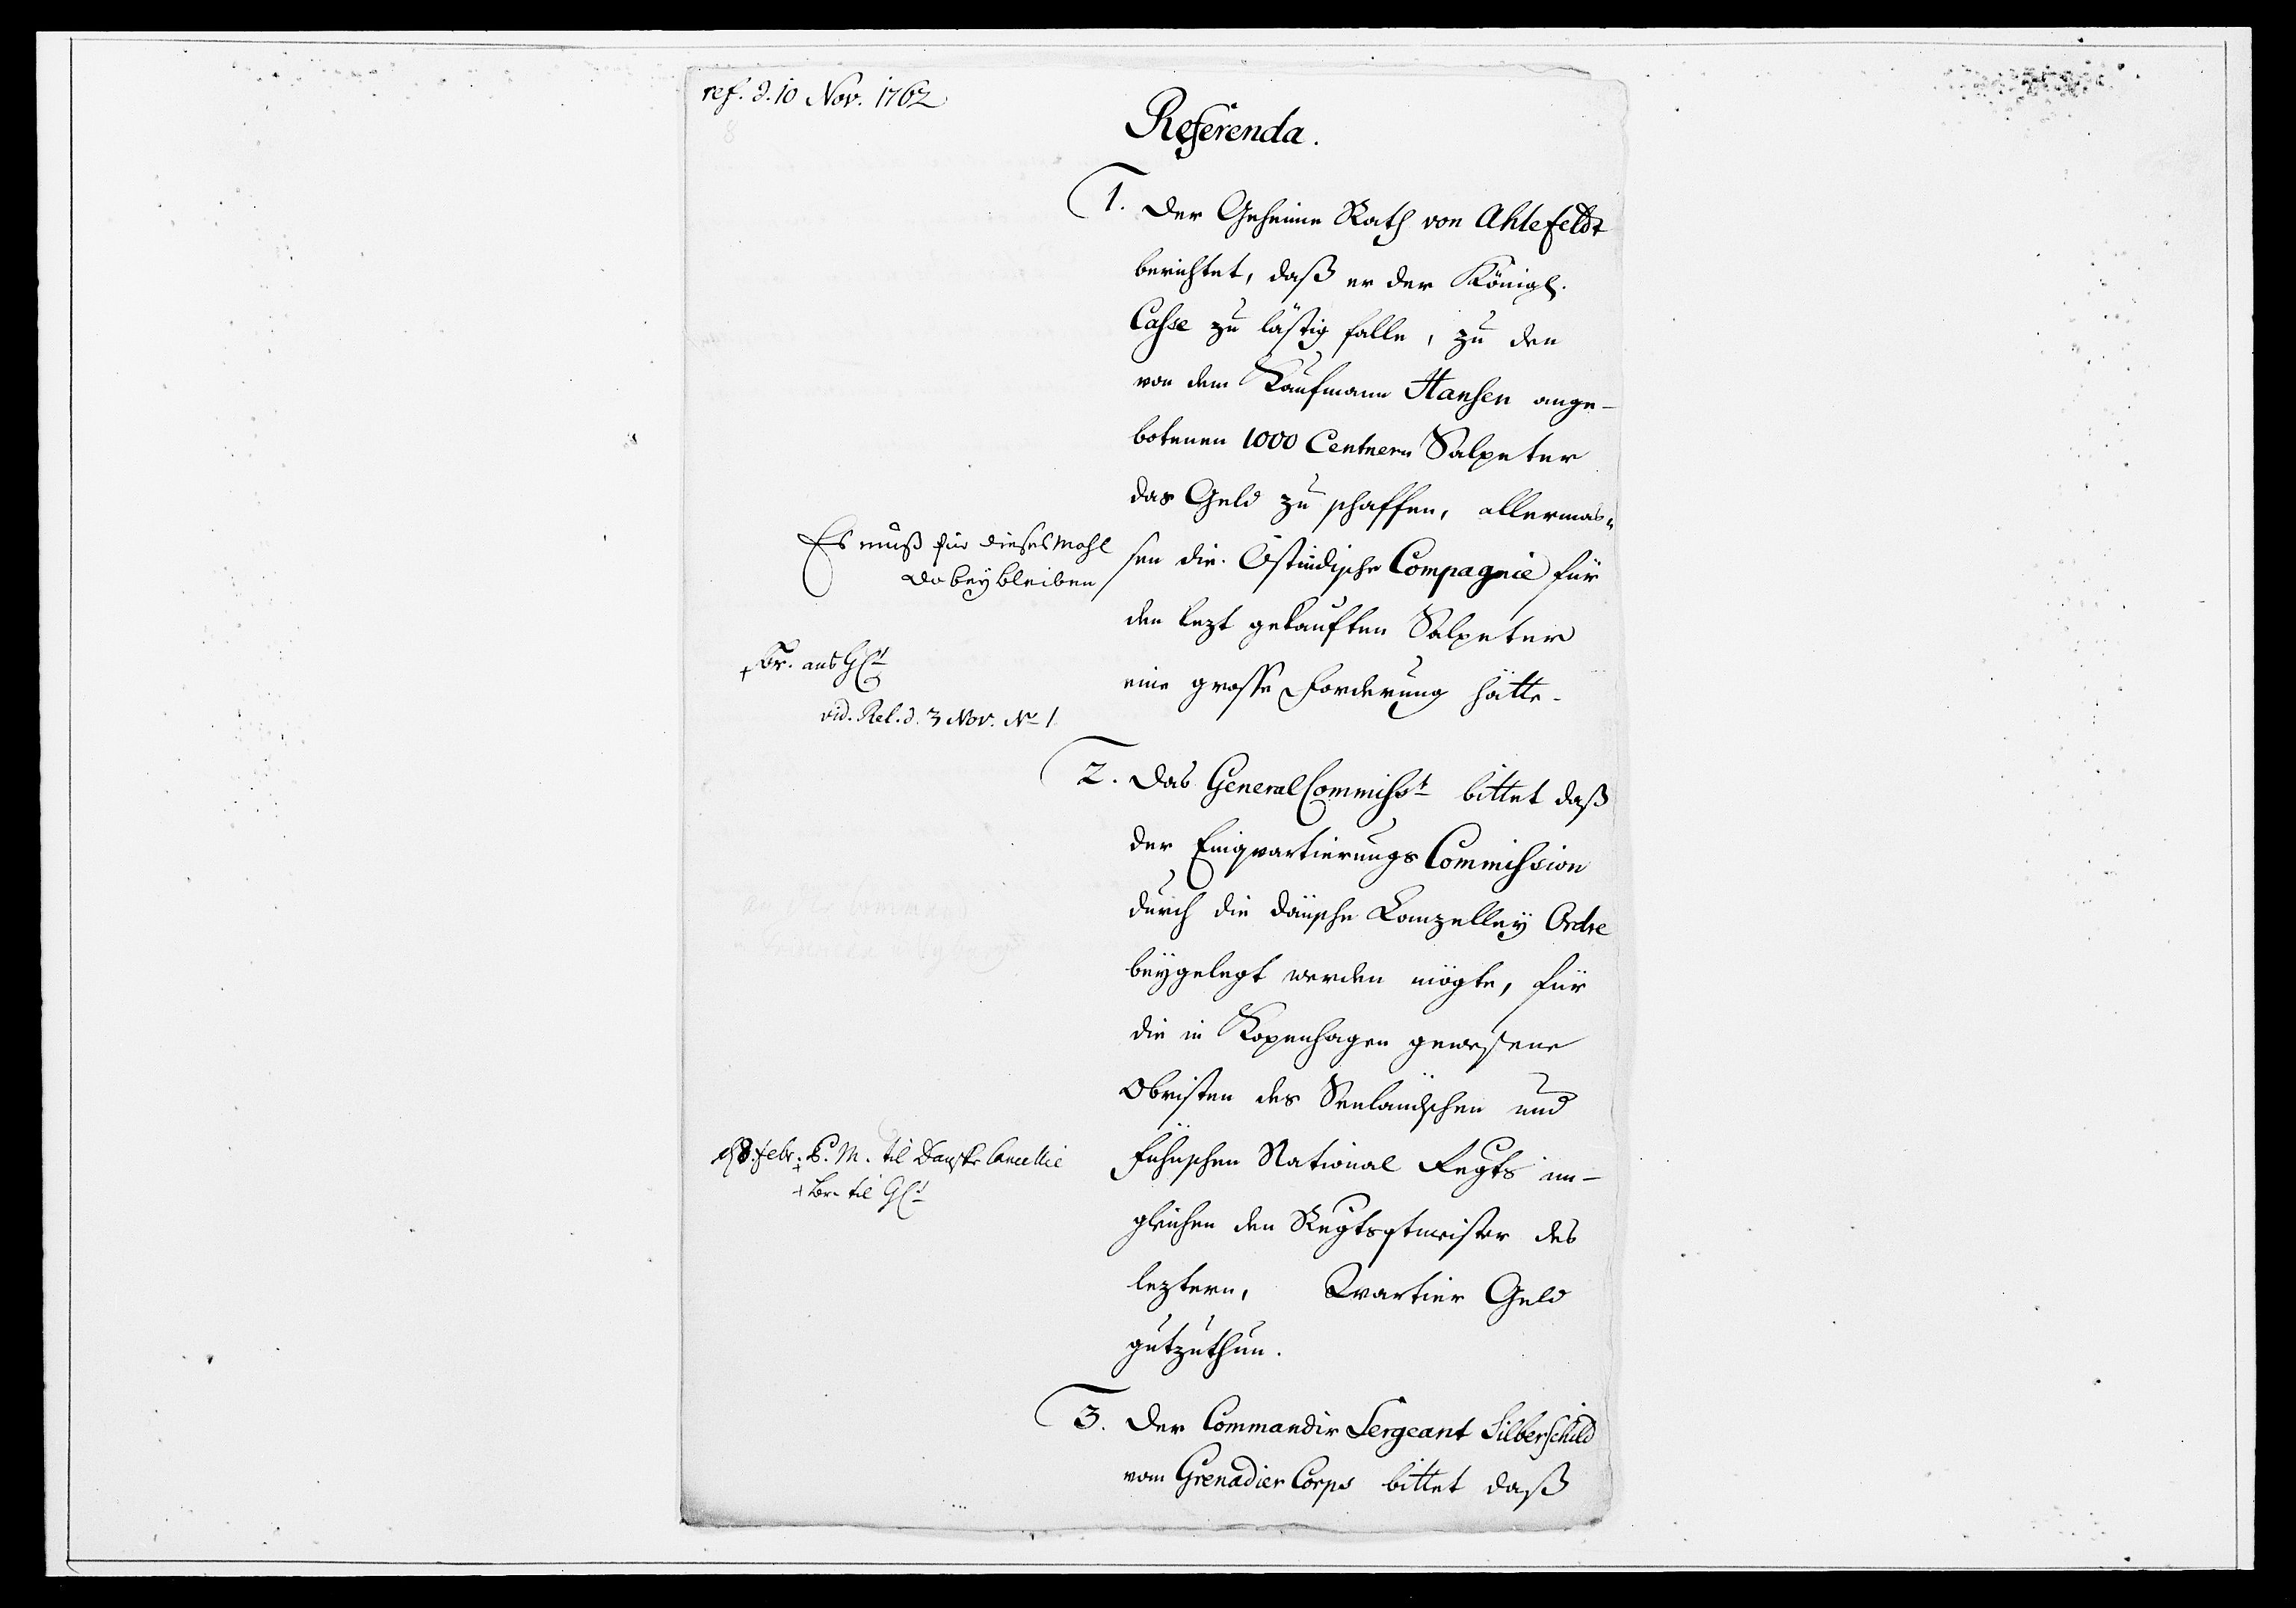 ref. d. 10 Nov. 1762
Referenda.
1. Der Geheime Rath von Ahlefeldt
berichtet, daß er der Königl.
Casse zu lästig falle, zu den
von dem Kaufmann Hansen ange-
botenen 1000 Centnern Salpeter
das Geld zu schaffen, allermas-
sen die Ostindische Compagnie für
den lezt gekauften Salpeter
eine grosse Forderung hätte.
Es muß für dieses Mahl
dabey bleiben
+ Br. ans GCt
vid. Rel. d. 3 Nov. No 1
2. Das General Commisst bittet daß
der Einqvartierungs Commission
durch die dänsche Canzelley Ordre
beygelegt werden mögte, für
die in Kopenhagen gewesene
Obristen des Seeländschen und
Fühnschen National Regts im-
gleichen den Regtsqtmeister des
leztern, Qvartier Geld
gutzuthun.
Febr. P. M. til Danske Cancellie
+ Br. til GCt
3. Der Commandir Sergeant Silberschild
vom Grenadier Corps bittet daß